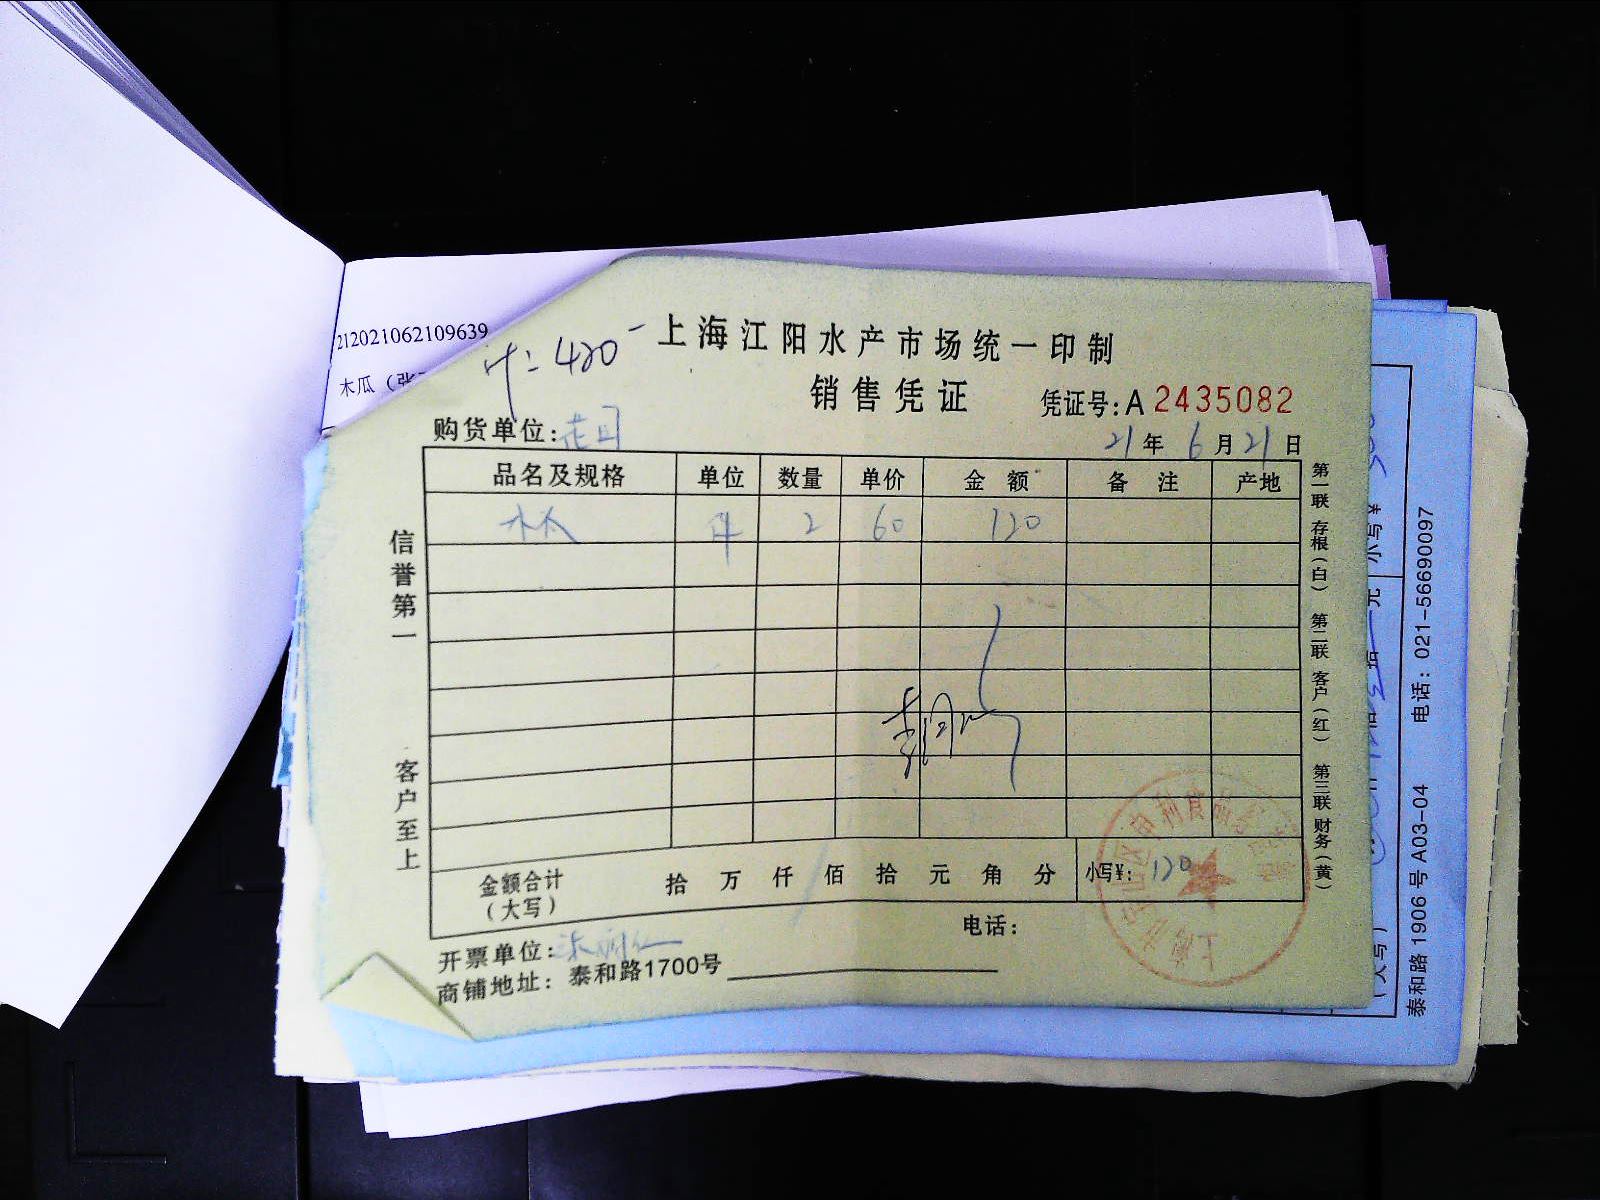 212021062109639
木瓜（张
计：420
上海江阳水产市场统一印制
销售凭证
凭证号：A 2435082
购货单位：
21年6月21日
品名及规格 单位 数量 单价 金额 备注 产地
2 60 120
信誉第一
客户至上
第一联 存根（白） 第二联 客户（红） 第三联 财务（黄）
金额合计（大写） 拾 万 仟 佰 拾 元 角 分 小写¥：120
开票单位：
电话：
商铺地址：泰和路1700号
小写¥
元
泰和路1906号A03-04 电话：021-56690097